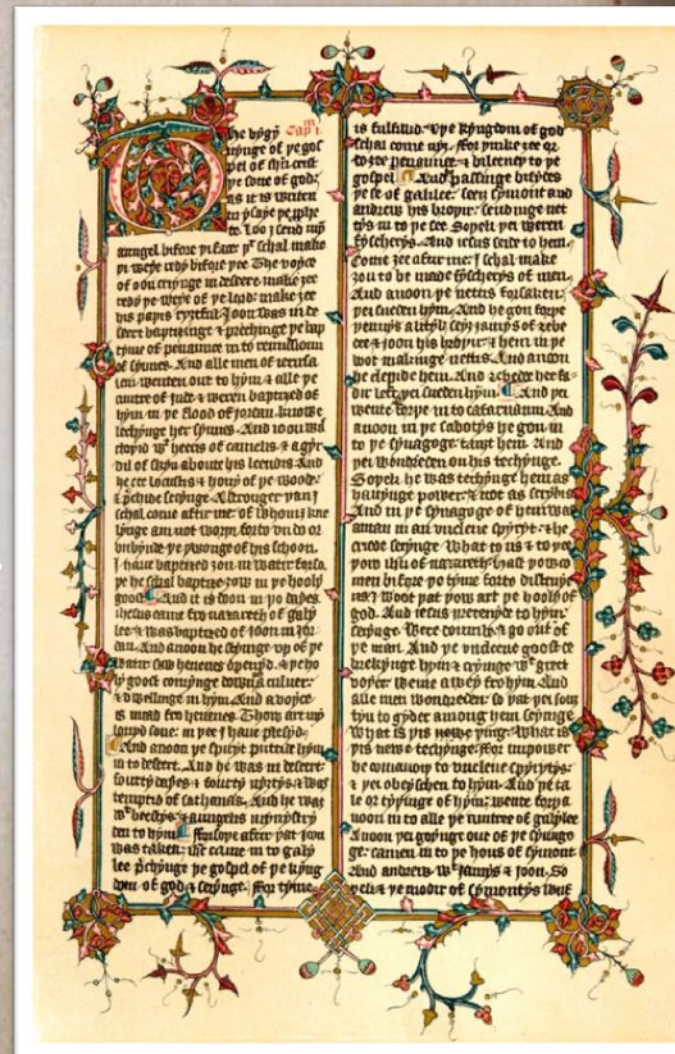 The bygy Capᵐ 1
nynge of þe gos
pel of ihū crist
þe sone of god:
as it is writen
in ysaye þe prophe
te. Loo I send my
aungel bifore þi face: þᵗ schal make
þi weye redy bifore þee The voyce
of oon criynge in desert: make ȝee
redy þe weye of þe lord: make ȝee
his paþis Joon was in de
sert baptisinge & prechinge þe bap
tyme of penaunce in to remissioun
of synnes. And alle men of ierusa
lem wenten out to hym & alle þe
cuntre of jude & weren baptized of
hym in þe flood of jordan: knowe
lechynge her synnes. And joon was
cloþid wᵗ heeris of camelis: & a gyr
dil of skyn aboute his leendis. And
he eet locustis & hony of þe wood:
& p̄chide seiynge. A stronger þan I
schal come aftir me: of whom I kne
lynge am not worþi forto vndo or
vnbynde þe þwonge of his schoon.
I haue baptized ȝou in watir forsoþe
he schal baptize ȝow in þe hooly
goost And it is doon in þo dayes.
ihesus came fro nazareth of galy
lee: & was baptized of joon in jor
dan. And anoon he stiynge vp of þe
watir saw heuenes openyd. & þe ho
ly goost comynge doun as a culuer:
& dwellinge in hym And a voyce
is maad fro heuenes Thow art my
louyd sone: in þee I haue plesyd.
And anoon þe spiryt puttide hym
in to desert. And he was in desert
fourty dayes & fourty nyȝtys: & was
temptid of sathanas. And he was
wᵗ beestys: & aungelis mynystry
den to hym Forsoþe after þat joon
was taken: ihc came in to galy
lee p̄chynge þe gospel of þe kyng
dom of god & seiynge. For tyme
is fulfillid: & þe kyngdom of god
schal come nyȝ. for þinke ȝee or
do ȝee penaunce & bileeue to þe
gospel And passinge bisydes
þe se of galilee: seeȝ symont and
andrew his broþir: sendinge net
tys in to þe see Soþeli þei weren
fyscherys. And iesus seide to hem
Come ȝee aftir me: I schal make
ȝou to be made fyscherys of men.
And anoon þe nettis forsaken:
þei sueden hym. And he gon forþe
þennys a lityl: seȝ jamys of zebe
dee & joon his broþir: & hem in þe
boot makinge nettis. And anoon
he clepide hem. And zebedee her fa
dir left þei sueden hym. And þei
wente forþe in to cafarnaum And
anoon in þe sabotys he gon in
to þe synagoge: tauȝt hem And
þei wondreden on his techynge.
Soþeli he was techynge hem as
hauynge power: & not as scribis
And in þe synagoge of hem was
a man in an vnclene spyryt: & he
criede seiynge What to us & to þee
þow ihū of nazareth: hast þow co
men bifore þe tyme forto distruye
us? I woot þat þow art þe hooly of
god. And iesus þretenyde to hym:
seiynge. Were doumb: & go out of
þe man And þe vnclene goost de
brekynge hym & criynge wᵗ greet
voyce: wente awey fro hym And
alle men wondreden: so þat þei souȝ
tyn to gyder among hem seyinge
What is þis newe þinge: What is
þis newe techynge: For in power
he comaundiþ to vnclene spyrytys:
& þei obeyschen to hym. And þe ta
le or tyþinge of hym: wente forþ a
noon in to alle þe cuntree of galylee
Anoon þei goynge out of þe synago
ge: camen in to þe hous of symont
And andrew: wᵗ jamys & joon. So
þeli & þe modir of symontys wyf